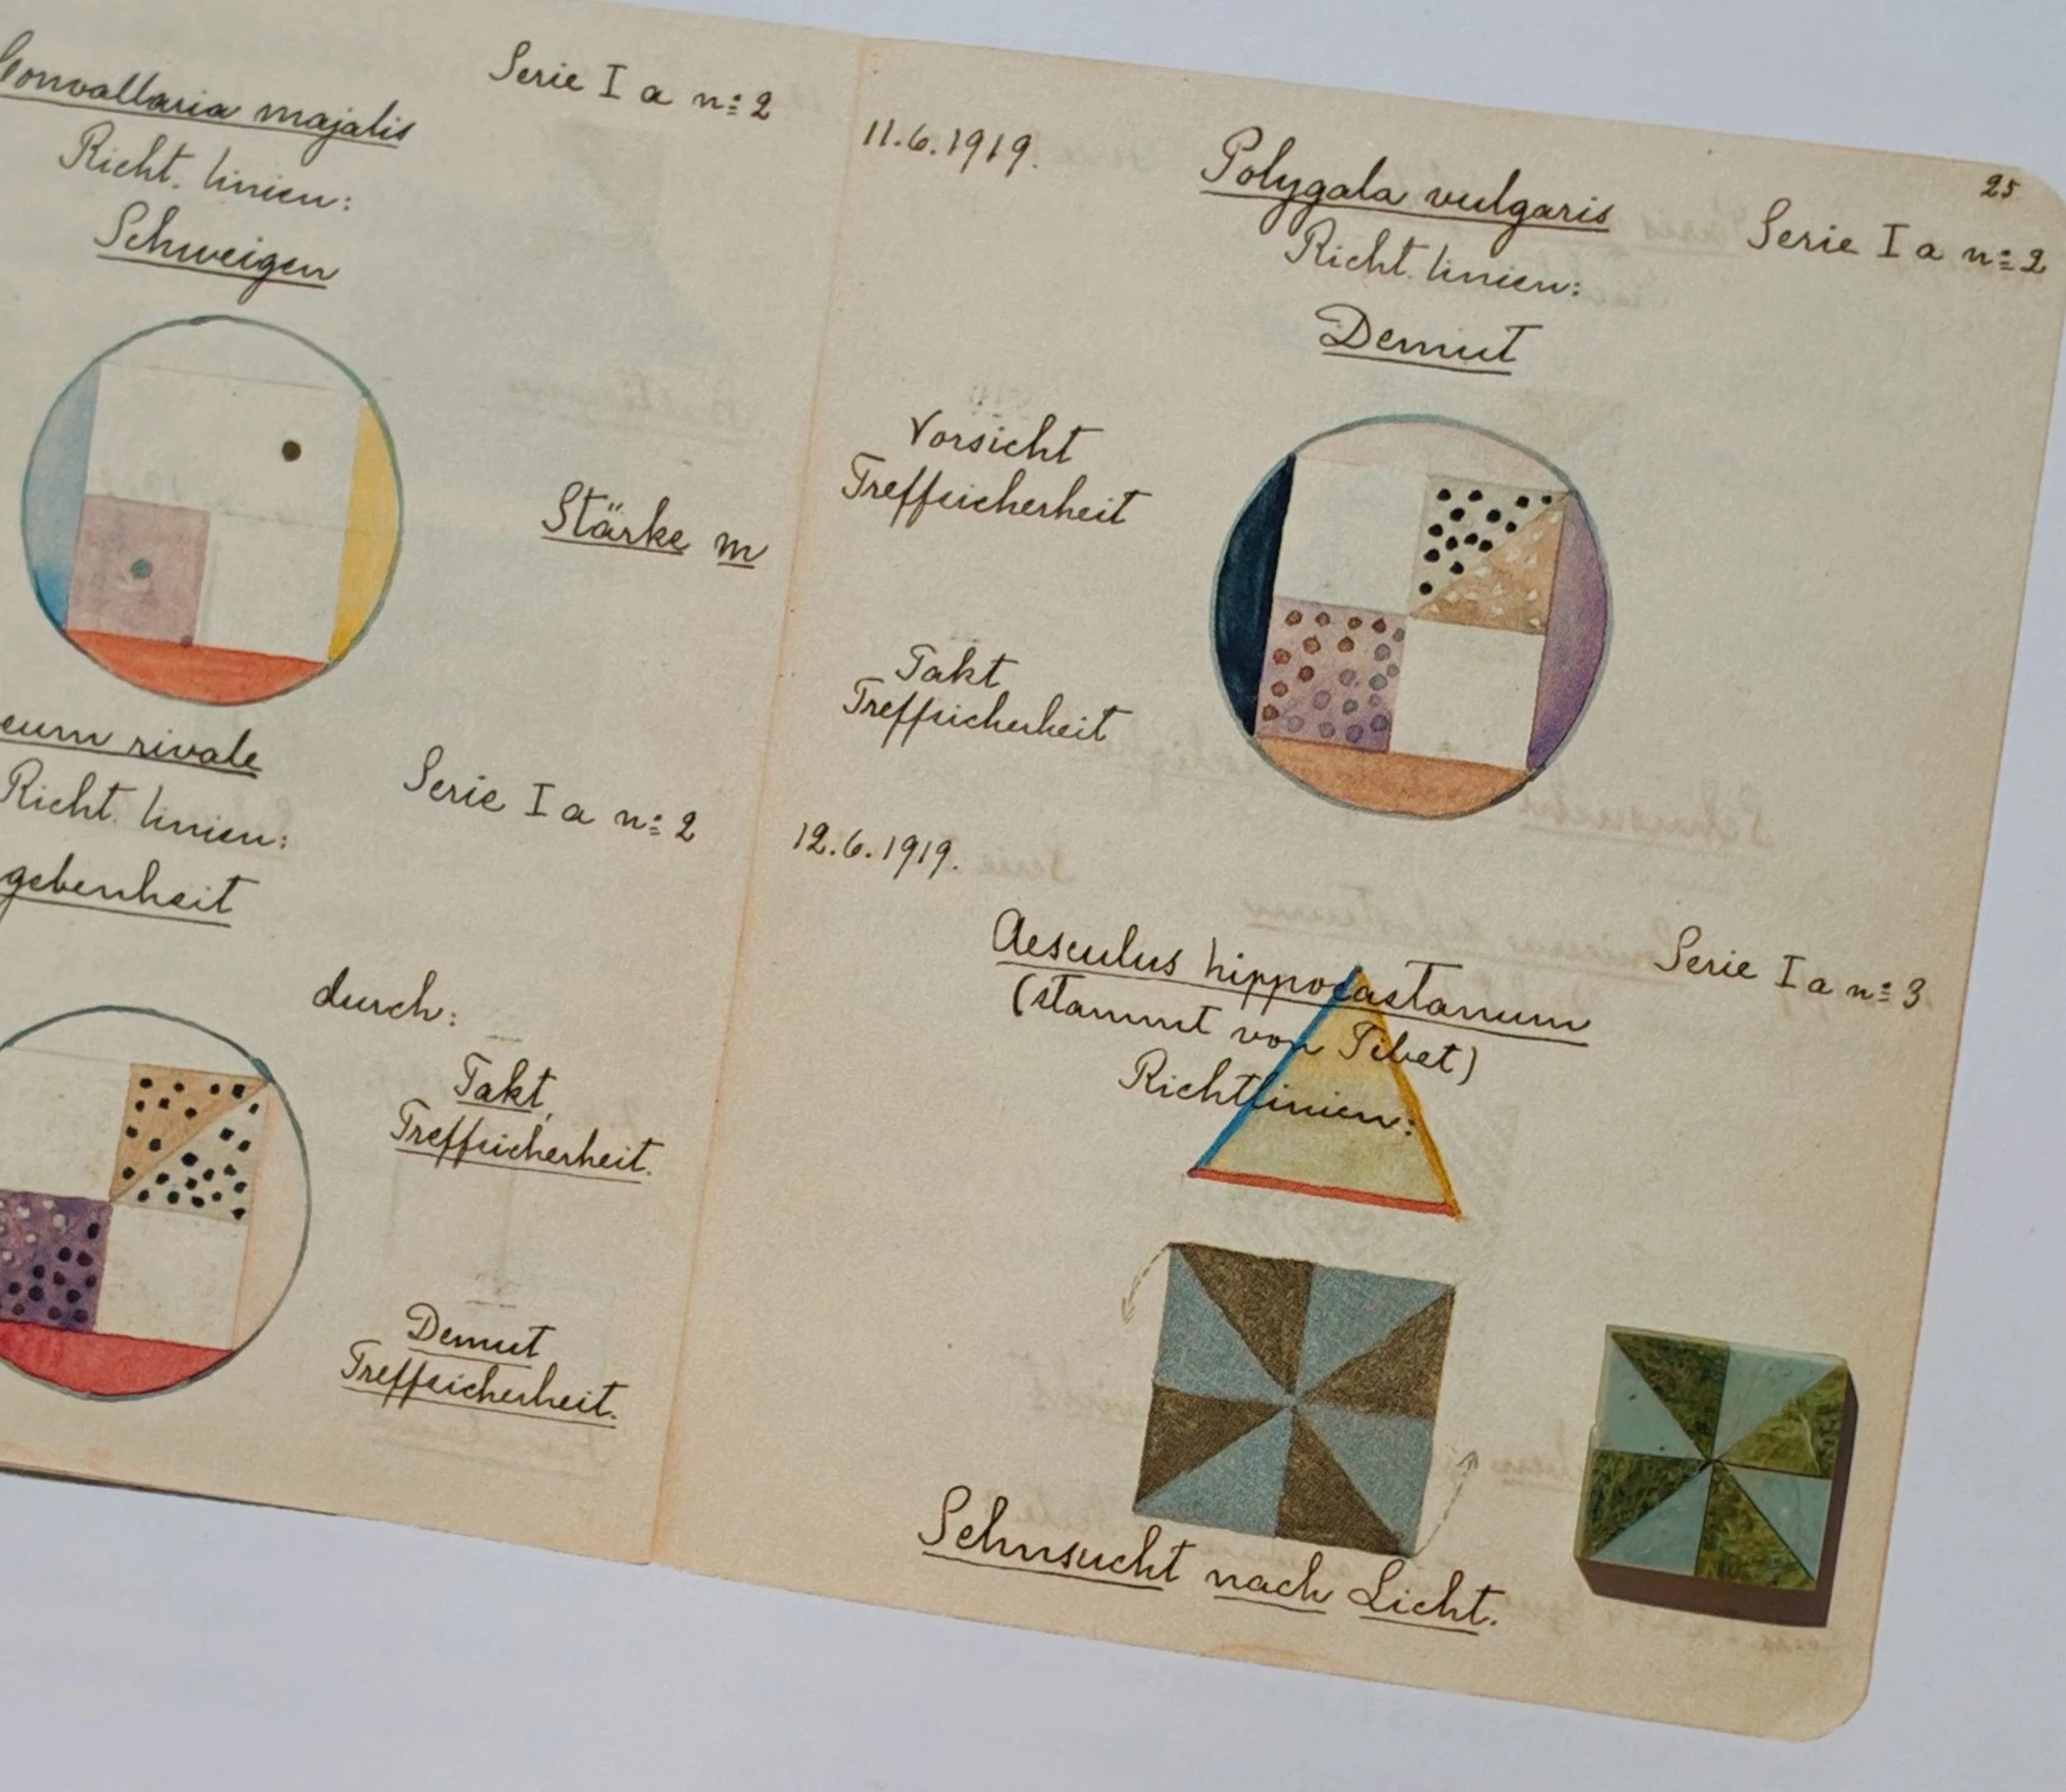 Convallaria majalis
Serie I a n:o 2
Richt. linien:
Schweigen
Stärke m
eum rivale
Serie I a n:o 2
Richt. linien:
gebenheit
durch:
Takt,
Treffsicherheit.
Demut
Treffsicherheit.
25
11.6.1919.
Polygala vulgaris
Serie I a n:o 2
Richt. linien:
Demut
Vorsicht
Treffsicherheit
Takt
Treffsicherheit
12.6.1919.
Aesculus hippocastanum
Serie I a n:o 3
(stammt von Tibet)
Richtlinien:
Sehnsucht nach Licht.